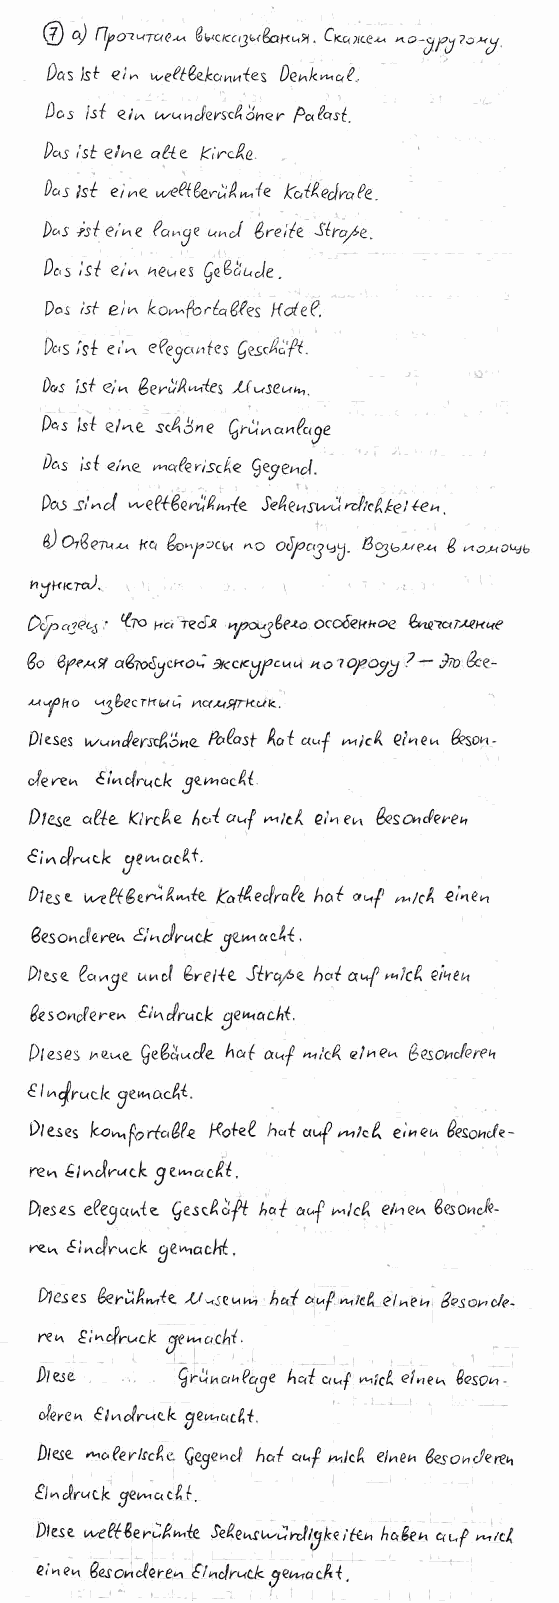 ⑦ а) Прочитаем высказывания. Скажем по-другому.
Das ist ein weltbekanntes Denkmal.
Das ist ein wunderschöner Palast.
Das ist eine alte Kirche.
Das ist eine weltberühmte Kathedrale.
Das ist eine lange und breite Straße.
Das ist ein neues Gebäude.
Das ist ein komfortables Hotel.
Das ist ein elegantes Geschäft.
Das ist ein berühmtes Museum.
Das ist eine schöne Grünanlage
Das ist eine malerische Gegend.
Das sind weltberühmte Sehenswürdichkeiten.
в) Ответим на вопросы по образцу. Возьмем в помощь
пункт а).
Образец: Что на тебя произвело особенное впечатление
во время автобусной экскурсии по городу? – Это все-
мирно известный памятник.
Dieses wunderschöne Palast hat auf mich einen beson-
deren Eindruck gemacht.
Diese alte Kirche hat auf mich einen besonderen
Eindruck gemacht.
Diese weltberühmte Kathedrale hat auf mich einen
besonderen Eindruck gemacht.
Diese lange und breite Straße hat auf mich einen
besonderen Eindruck gemacht.
Dieses neue Gebäude hat auf mich einen besonderen
Eindruck gemacht.
Dieses komfortable Hotel hat auf mich einen besonde-
ren Eindruck gemacht.
Dieses elegante Geschäft hat auf mich einen besonde-
ren Eindruck gemacht.
Dieses berühmte Museum hat auf mich einen besonde-
ren Eindruck gemacht.
Diese Grünanlage hat auf mich einen beson-
deren Eindruck gemacht.
Diese malerische Gegend hat auf mich einen besonderen
Eindruck gemacht.
Diese weltberühmte Sehenswürdigkeiten haben auf mich
einen besonderen Eindruck gemacht.